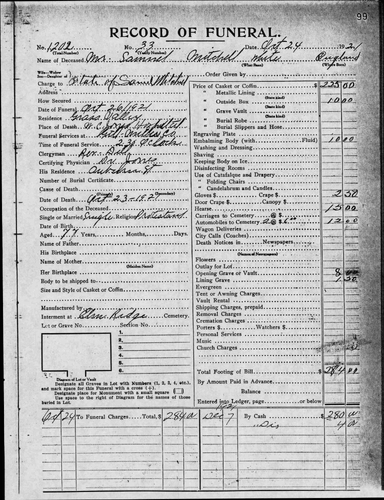 99
RECORD OF FUNERAL.
No. 1202 No. 33 Oct 24 1921
(Total Number) (Yearly Number)
Name of Deceased Mr. Samuel Mitchell White England
(What Race) (Where Born)
Charge to Estate of Saml Mitchell
Address
How Secured
Date of Funeral Oct 26/1921
Place of Funeral Grass Valley
Funeral Services at
Time of Funeral Service 2
Clergyman Rev.
Certifying Physician Dr Jones
His Residence
Number of Burial Certificate
Cause of Death
Date of Death Oct 23-1921
Occupation of the Deceased
Single or Married Single Religion Protestant
Date of Birth
Aged 77 Years, Months, Days
Name of Father
His Birthplace
Name of Mother
(Maiden Name)
Her Birthplace
Body to be shipped to
Size and Style of Casket or Coffin
Manufactured by
Interment at Elm Ridge Cemetery.
Lot or Grave No. Section No.
Diagram of Lot or Vault
Designate all Graves in Lot with Numbers (1, 2, 3, 4, etc.), and mark space for this Funeral with a cross (+).
Designate place for Monument with a small square
Use space to right of Diagram for the names of those buried in Lot.
Order Given by
Price of Casket or Coffin $ 225 00
" Metallic Lining
(State kind)
" Outside Box 10 00
(State kind)
" Grave Vault
(State kind)
" Burial Robe
(State kind)
" Burial Slippers and Hose
Engraving Plate
Embalming Body (with Fluid) 10 00
Washing and Dressing
Shaving
Keeping Body on Ice
Disinfecting Rooms
Use of Catafalque and Drapery
" Folding Chairs
" Candelabrum and Candles
Gloves $ 2 50
Door Crape Candy $
Hearse 15 00
Carriages to Cemetery @ $
Automobiles to Cemetery 2 @ $6 00 12 00
Wagon Deliveries
City Calls (Coaches)
Death Notices in Newspapers
(Names of Newspapers)
Flowers
Outlay for Lot
Opening Grave or Vault 8 00
Lining Grave 1 50
Evergreen
Tent or Awning Charges
Vault Rental
Shipping Charges, prepaid
Removal Charges
Cremation Charges
Porters $ Watchers $
Personal Services
Music
Church Charges
Total Footing of Bill $ 284 00
By Amount Paid in Advance
Balance
Entered into Ledger, page or below.
Oct 24 To Funeral Charges, Total, $ 284 00 Dec 7 By Cash 280 00
Dis 4 00